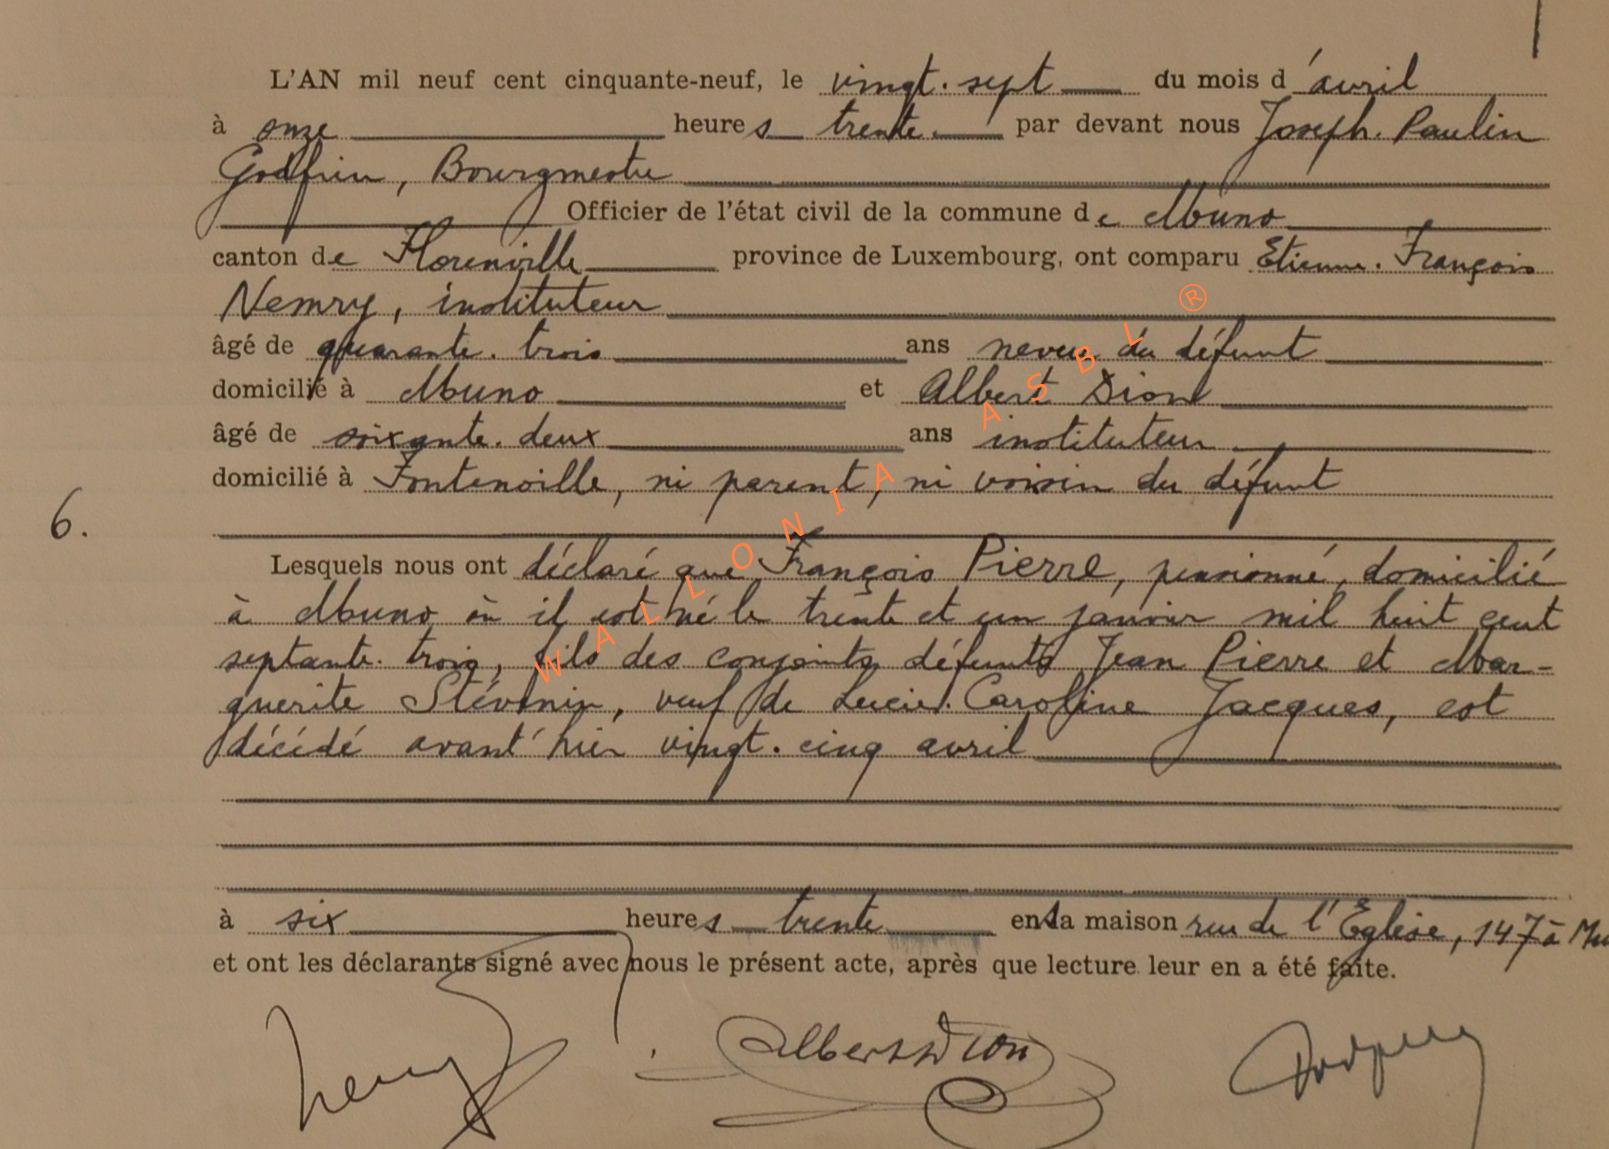 L'AN mil neuf cent cinquante-neuf, le vingt-sept du mois d'avril
à onze heures trente par devant nous Joseph-Paulin
Godfrin, Bourgmestre
Officier de l'état civil de la commune de Muno
canton de Florenville province de Luxembourg, ont comparu Etienne-François
Nemry, instituteur
âgé de quarante-trois ans neveu du défunt
domicilié à Muno et Albert Dion
âgé de soixante-deux ans instituteur
domicilié à Fontenoille, ni parent, ni voisin du défunt
6.
Lesquels nous ont déclaré que François Pierre, pensionné, domicilié
à Muno où il est né le trente et un janvier mil huit cent
septante-trois, fils des conjoints défunts Jean Pierre et Mar-
guerite Stévenin, veuf de Lucie-Caroline Jacques, est
décédé avant-hier vingt-cinq avril
à six heures trente en sa maison rue de l'Eglise, 147 à Mu
et ont les déclarants signé avec nous le présent acte, après que lecture leur en a été faite.
Nemry Albert Dion Godfrin
WALLONIA ASBL ®